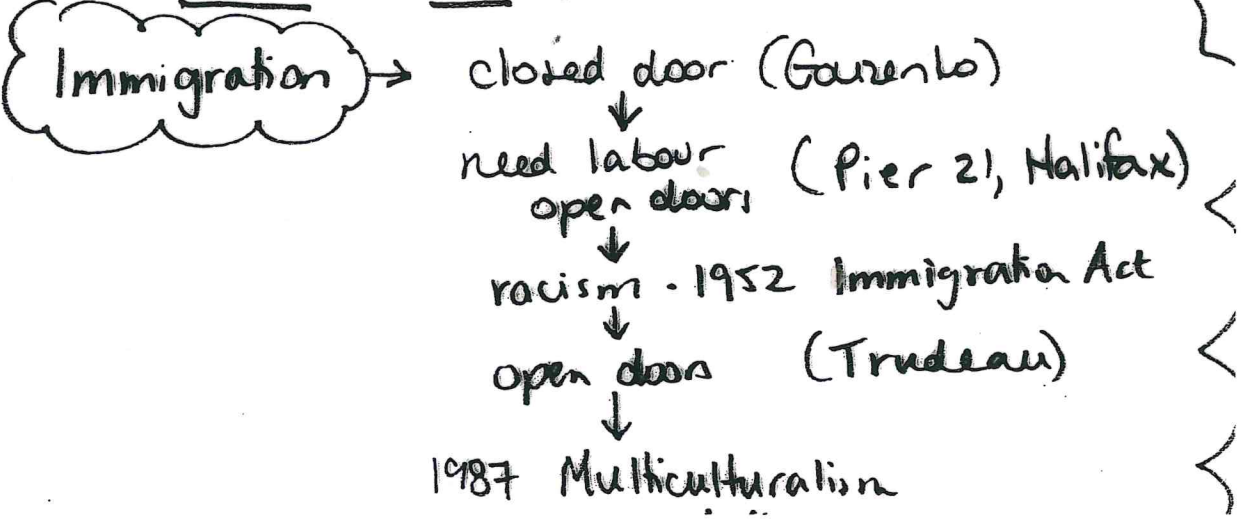 Immigration → closed door (Gouzenko)
↓
need labour (Pier 21, Halifax)
open doors
↓
racism - 1952 Immigration Act
↓
open doors (Trudeau)
↓
1987 Multiculturalism